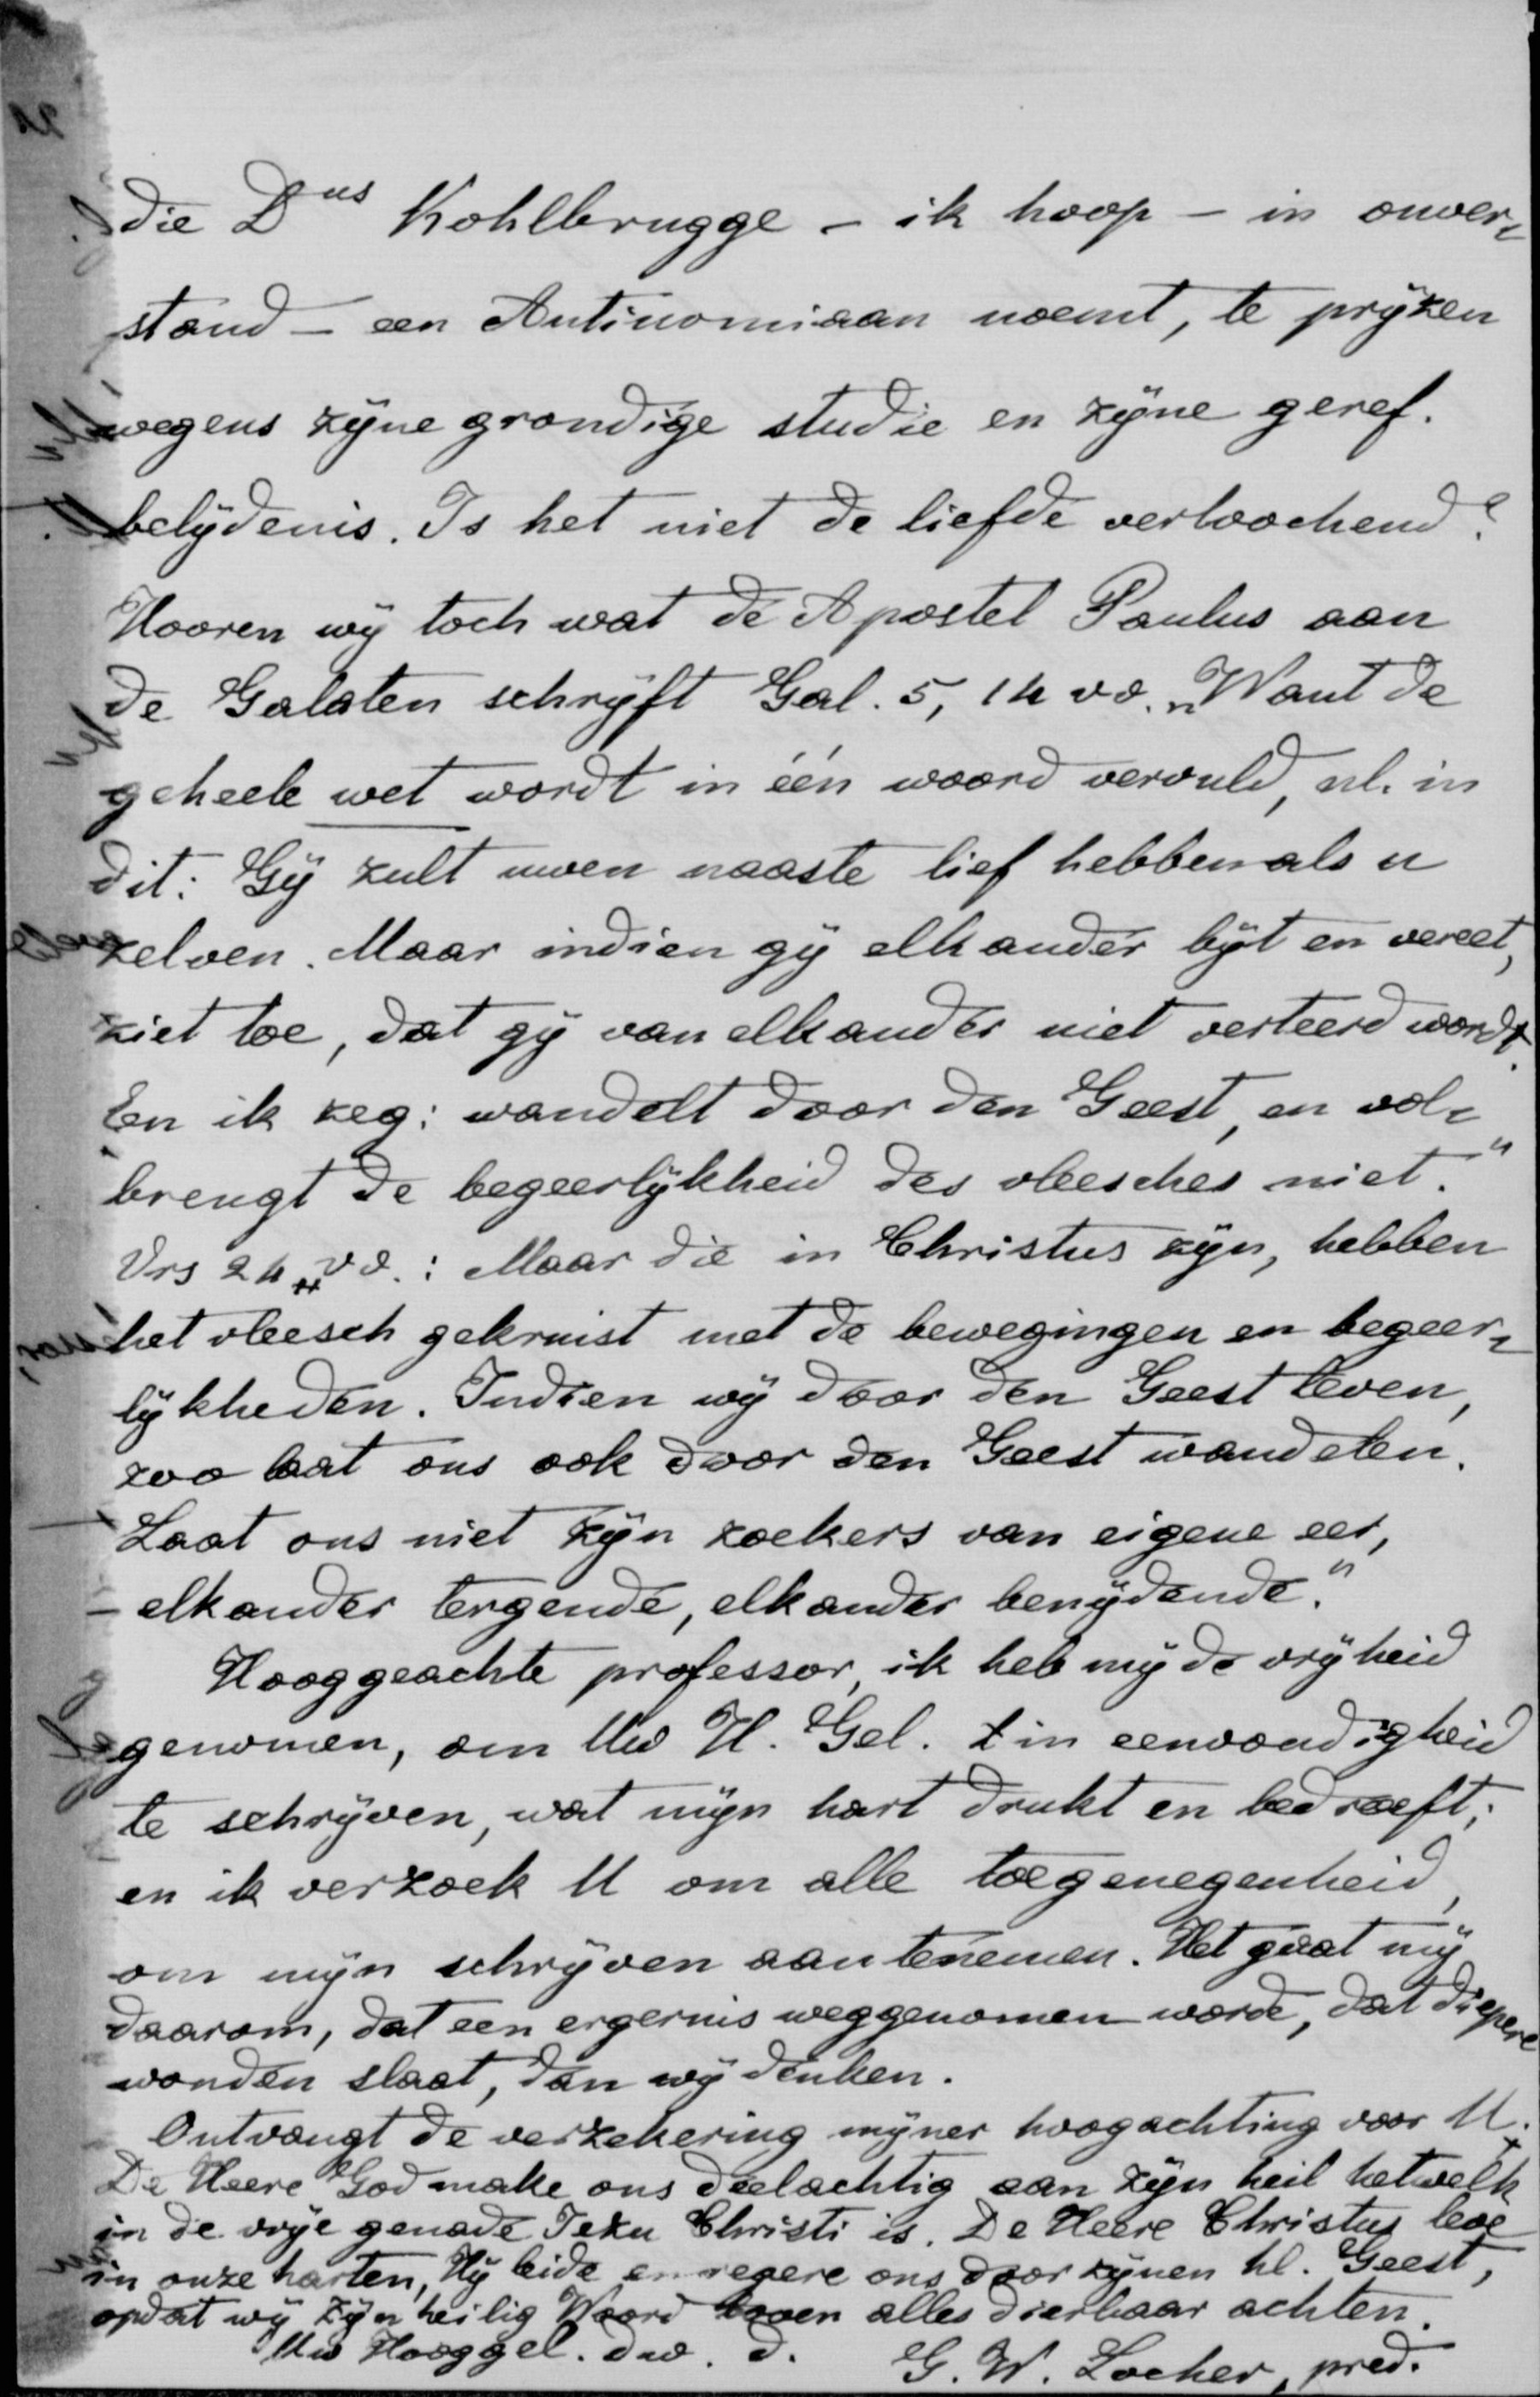 die Dus Kohlbrugge - ik hoop - in onver-
stand - een Antinomiaan noemt, te prijzen
wegens zijne grondige studie en zijne geref.
belijdenis. Is het niet de liefde verloochend?
Hooren wij toch wat de Apostel Paulus aan
de Galaten schrijft Gal. 5, 14 vv. „Want de
geheele wet wordt in één woord vervuld, nl. in
dit: Gij zult uwen naaste lief hebben als u
zelven. Maar indien gij elkander bijt en vereet,
ziet toe, dat gij van elkander niet verteerd wordt.
En ik zeg: wandelt door den Geest, en vol-
brengt de begeerlijkheid des vleesches niet."
Vrs 24 vv.: Maar die in Christus zijn, hebben
het vleesch gekruist met de bewegingen en begeer-
lijkheden. Indien wij door den Geest leven,
zoo laat ons ook door den Geest wandelen.
Laat ons niet zijn zoekers van eigene eer,
elkander tergende, elkander benijdende."
Hooggeachte professor, ik heb mij de vrijheid
genomen, om Uw H. Gel. in eenvoudigheid
te schrijven, wat mijn hart drukt en bedroeft;
en ik verzoek U om alle toegenegenheid,
om mijn schrijven aan te nemen. Het gaat mij
daarom, dat een ergernis weggenomen worde, dat diepere
wonden slaat, dan wij denken.
Ontvangt de verzekering mijner hoogachting voor U.
De Heere God make ons deelachtig aan zijn heil hetwelk
in de vrije genade Jezu Christi is. De Heere Christus leve
in onze harten, Hij leide en regere ons door zijnen hl. Geest,
opdat wij zijn heilig Woord boven alles dierbaar achten.
Uw Hooggel. dw. d.   G. W. Locher, pred.